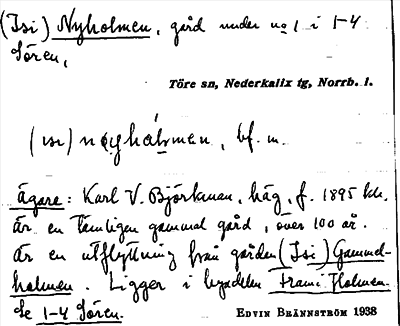 (Isi) Nyholmen, gård under no 1 i 1-4
Sören,
Töre sn, Nederkalix tg, Norrb. l.
bf. m.
Ägare: Karl V. Björkman, häg, f. 1895 
Är en tämligen gammal gård, över 100 år.
Är en utflyttning från gården (Isi) Gammel-
holmen. Ligger i bydelen Frami Holmen.
Se 1-4 Sören.
EDVIN BRÄNNSTRÖM 1938